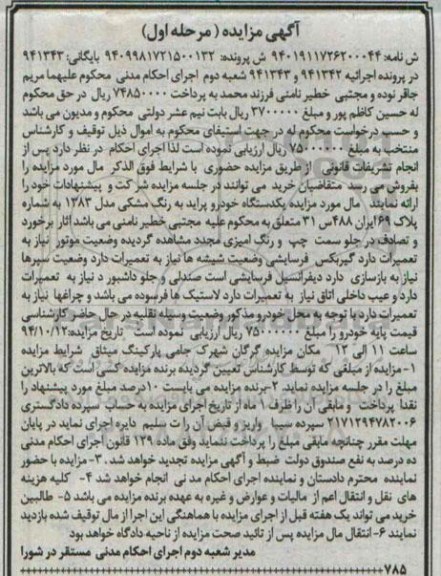 آگهی مزایده (مرحله اول)
ش نامه: ۹۴۰۱۹۱۱۷۲۶۲۰۰۰۴۴ ش پرونده: ۹۴۰۹۹۸۱۷۲۱۵۰۰۱۳۲ بایگانی: ۹۴۱۳۴۳
در پرونده اجرائیه ۹۴۱۳۴۲ و ۹۴۱۳۴۳ شعبه دوم اجرای احکام مدنی محکوم علیهما مریم
جاقر نوده و مجتبی خطیر نامنی فرزند محمد به پرداخت ۷۴۸۵۰۰۰۰ ریال در حق محکوم
له حسین کاظم پور و مبلغ ۳۷۰۰۰۰۰ ریال بابت نیم عشر دولتی محکوم و مدیون می باشد
و حسب درخواست محکوم له در جهت استیفای محکوم به اموال ذیل توقیف و کارشناس
منتخب به مبلغ ۷۵۰۰۰۰۰۰ ریال ارزیابی نموده است لذا اجرای احکام در نظر دارد پس از
انجام تشریفات قانونی از طریق مزایده حضوری با شرایط فوق الذکر مال مورد مزایده را
بفروش می رسد متقاضیان خرید می توانند در جلسه مزایده شرکت و پیشنهادات خود را
ارائه نمایند مال مورد مزایده یکدستگاه خودرو پراید به رنگ مشکی مدل ۱۳۸۳ به شماره
پلاک ۶۹ ایران ۴۸۸س۳۱ متعلق به محکوم علیه مجتبی خطیر نامنی می باشد آثار برخورد
و تصادف در جلو سمت چپ و رنگ آمیزی مجدد مشاهده گردیده وضعیت موتور نیاز به
تعمیرات دارد گیربکس فرسایشی وضعیت شیشه ها نیاز به تعمیرات دارد وضعیت سپرها
نیاز به بازسازی دارد دیفرانسیل فرسایشی است صندلی و جلو داشبورد نیاز به تعمیرات
دارد و عیب داخلی اتاق نیاز به تعمیرات دارد لاستیک ها فرسوده می باشد و چراغها نیاز به
تعمیرات دارد با توجه به محل خودرو مذکور وضعیت وسیله نقلیه در حال حاضر کارشناسی
قیمت پایه خودرو را مبلغ ۷۵۰۰۰۰۰۰ ریال ارزیابی نموده است تاریخ مزایده: ۹۴/۱۰/۱۲
ساعت ۱۱ الی ۱۲ مکان مزایده گرگان شهرک جامی پارکینگ میثاق شرایط مزایده
۱- مزایده از مبلغی که توسط کارشناس تعیین گردیده برنده مزایده کسی است که بالاترین
مبلغ را در جلسه مزایده نماید. ۲- برنده مزایده می بایست ۱۰درصد مبلغ مورد پیشنهاد را
نقدا پرداخت و مابقی آن را ظرف ۱ ماه از تاریخ اجرای مزایده به حساب سپرده دادگستری
۲۱۷۱۲۹۴۷۸۲۰۰۶ سپرده سیبا واریز و فیض آن را ت سلیم دایره اجرای نماید در پایان
مهلت مقرر چنانچه مابقی مبلغ را پرداخت ننماید وفق ماده ۱۲۹ قانون اجرای احکام مدنی
ده درصد به نفع صندوق دولت ضبط و آگهی مزایده تجدید خواهد شد. ۳- مزایده با حضور
نماینده محترم دادستان و نماینده اجرای احکام مدنی انجام خواهد شد ۴- کلیه هزینه
های نقل و انتقال اعم از مالیات و عوارض و غیره به عهده برنده مزایده می باشد ۵- طالبین
خرید می تواند یک هفته قبل از اجرای مزایده با هماهنگی این اجرا از مال توقیف شده بازدید
نمایند ۶- انتقال مال مزایده پس از تائید صحت مزایده از ناحیه دادگاه خواهد بود
مدیر شعبه دوم اجرای احکام مدنی مستقر در شورا
۷۸۵